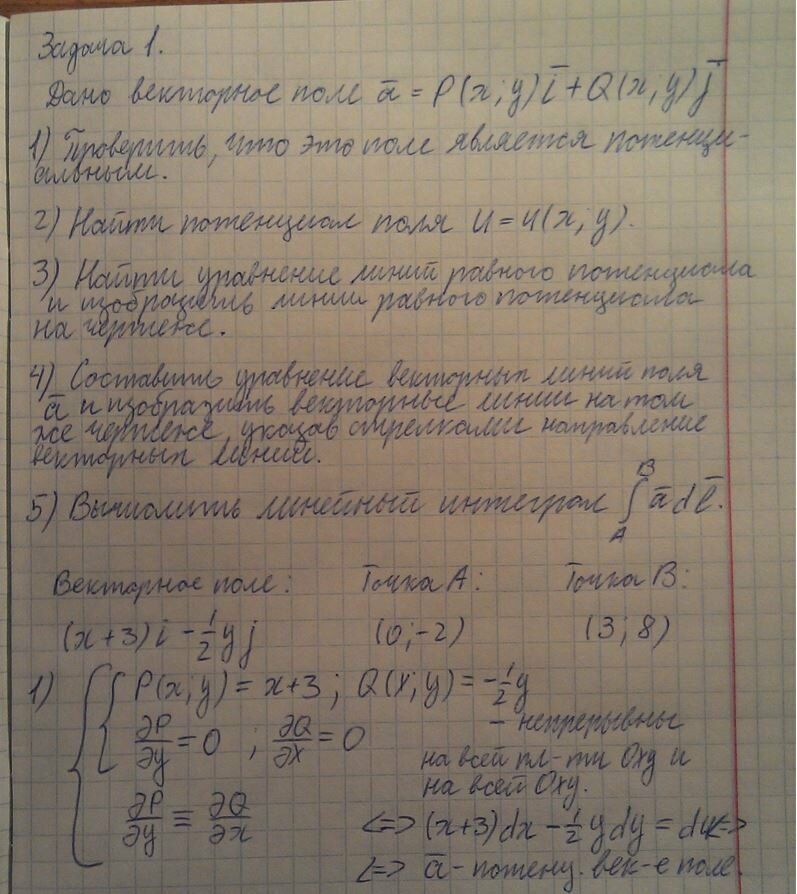 Задача 1.
Дано векторное поле a̅ = P(x;y)i̅+Q(x,y)j̅
1) Проверить, что это поле является потенци-
альным.
2) Найти потенциал поля u=u(x;y).
3) Найти уравнение линий равного потенциала
и изобразить линии равного потенциала
на чертеже.
4) Составить уравнение векторных линий поля
a̅ и изобразить векторные линии на том
же чертеже, указав стрелками направление
векторных линий.
5) Вычислить линейный интеграл ∫_A^B a̅ dl̅.
Векторное поле: Точка А: Точка В:
(x+3)i - 1/2 yj (0;-2) (3;8)
1) P(x;y)=x+3; Q(x;y)=-1/2 y
∂P/∂y = 0 ; ∂Q/∂x = 0 - непрерывны
на всей пл-ти Oxy и
на всей Oxy.
∂P/∂y ≡ ∂Q/∂x <=> (x+3)dx - 1/2 ydy = du <=>
<=> a̅ - потенц. век-е поле.